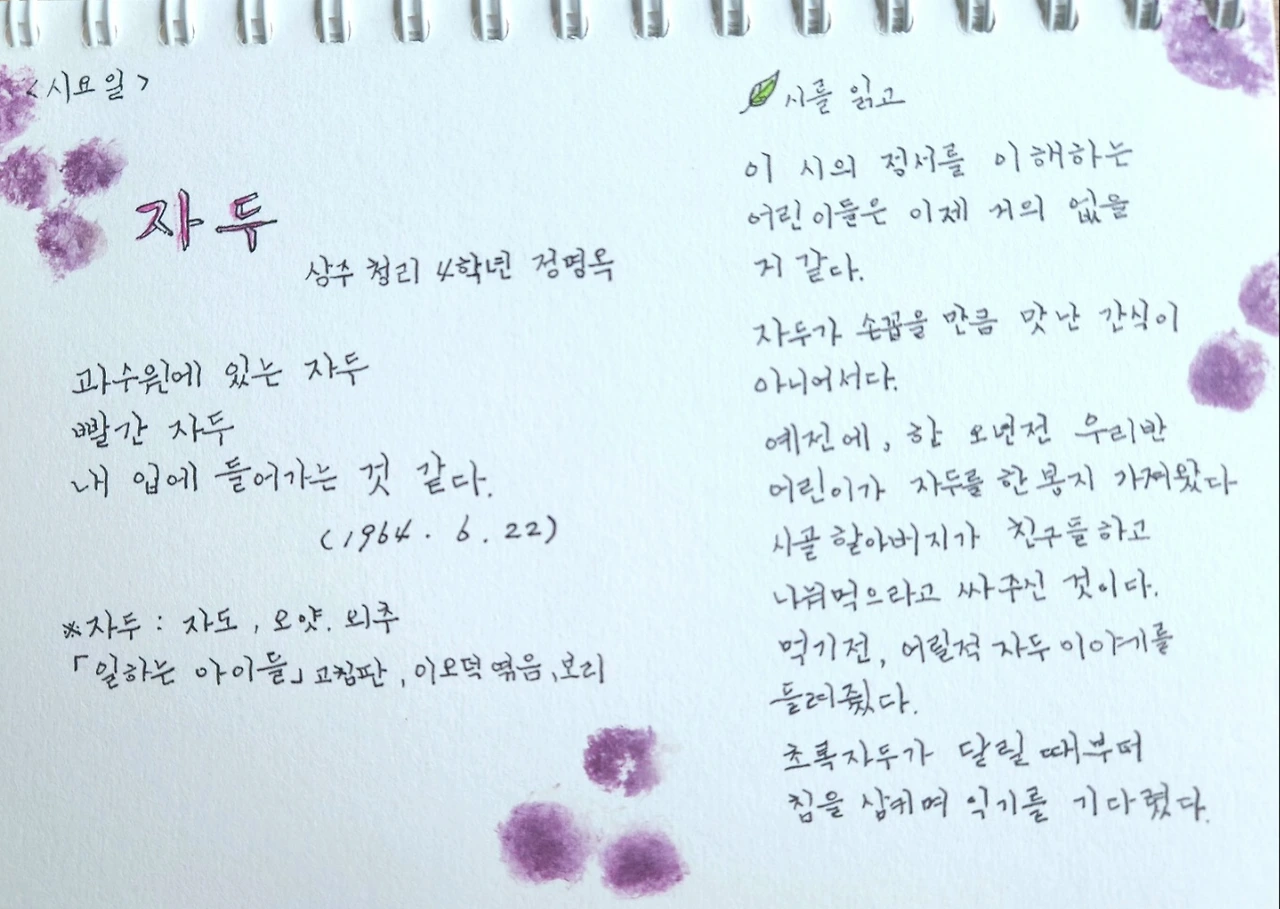 <시요일>
자두
상주 청리 4학년 정명옥
과수원에 있는 자두
빨간 자두
내 입에 들어가는 것 같다.
(1964. 6. 22)
※자두 : 자도, 오얏. 외추
「일하는 아이들」 고침판, 이오덕 엮음, 보리
시를 읽고
이 시의 정서를 이해하는
어린이들은 이제 거의 없을
지 같다.
자두가 손꼽을 만큼 맛난 간식이
아니어서다.
예전에, 한 오년전 우리반
어린이가 자두를 한봉지 가져왔다
시골 할아버지가 친구들하고
나눠먹으라고 싸주신 것이다.
먹기전, 어릴적 자두 이야기를
들려줬다.
초록자두가 달릴 때부터
침을 삼키며 익기를 기다렸다.